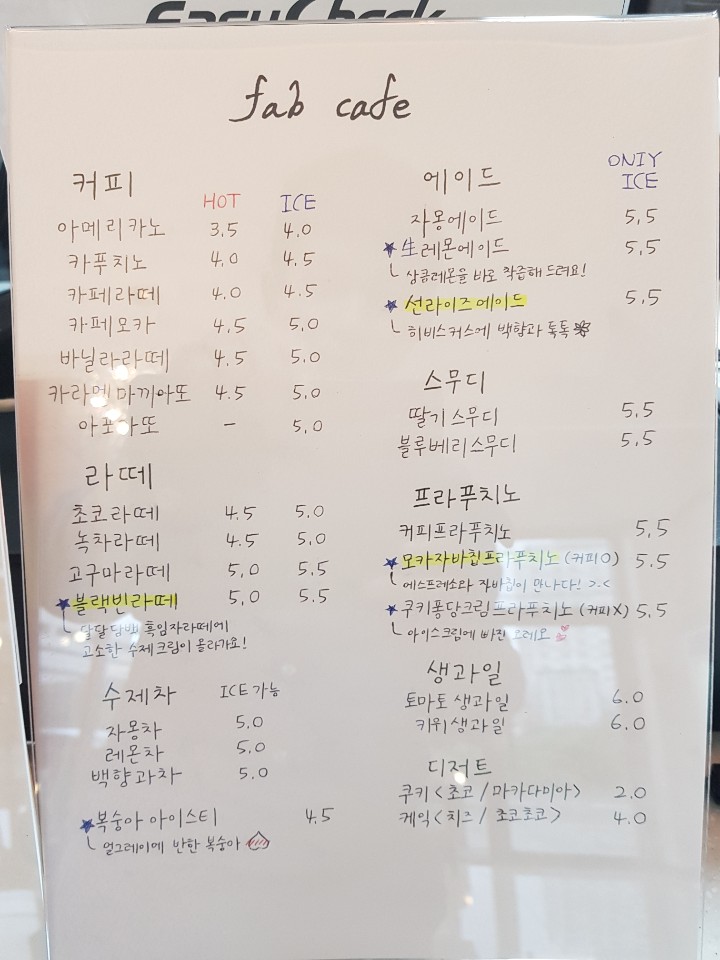 EasyCheck
fab cafe
커피
HOT ICE
아메리카노 3.5 4.0
카푸치노 4.0 4.5
카페라떼 4.0 4.5
카페모카 4.5 5.0
바닐라라떼 4.5 5.0
카라멜마끼아또 4.5 5.0
아포가또 - 5.0
라떼
초코라떼 4.5 5.0
녹차라떼 4.5 5.0
고구마라떼 5.0 5.5
★블랙빈라떼 5.0 5.5
달달담백 흑임자라떼에
고소한 수제크림이 올라가요!
수제차 ICE가능
자몽차 5.0
레몬차 5.0
백향과차 5.0
★복숭아 아이스티 4.5
얼그레이에 반한 복숭아
에이드
ONlY
ICE
자몽에이드 5.5
★生레몬에이드 5.5
상큼레몬을 바로 착즙해 드려요!
★선라이즈에이드 5.5
히비스커스에 백향과 톡톡
스무디
딸기스무디 5.5
블루베리스무디 5.5
프라푸치노
커피프라푸치노 5.5
★모카자바칩프라푸치노 (커피O) 5.5
에스프레소와 자바칩이 만나다! >.<
★쿠키퐁당크림프라푸치노 (커피X) 5.5
아이스크림에 빠진 오레오
생과일
토마토 생과일 6.0
키위생과일 6.0
디저트
쿠키<초코/마카다미아> 2.0
케익<치즈/초코초코> 4.0